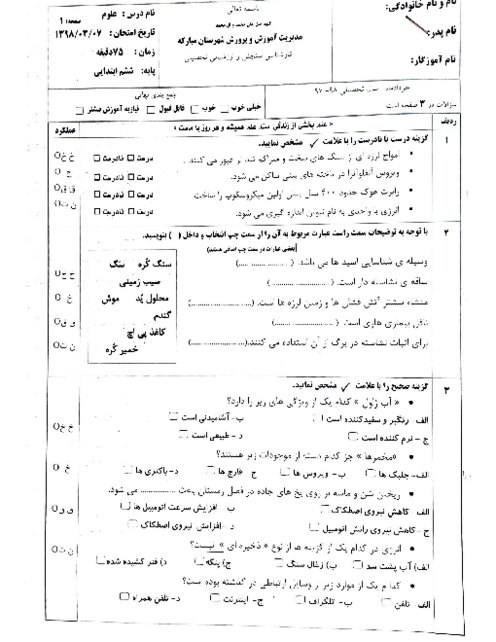 باسمه تعالی
نام و نام خانوادگی:
نام پدر:
نام آموزگار:
مدیریت آموزش و پرورش شهرستان مبارکه
کارشناسی سنجش و ارزشیابی تحصیلی
نام درس: علوم صفحه: ۱
تاریخ امتحان: ۱۳۹۸/۰۳/۰۷
زمان: ۷۵دقیقه
پایه: ششم ابتدایی
خردادماه سال تحصیلی ۹۸-۹۷
سؤالات در ۳ صفحه است
جمع بندی نهایی
خیلی خوب خوب قابل قبول نیازبه آموزش بیشتر
ردیف
« علم بخشی از زندگی ست. علم همیشه و هر روز با ماست »
عملکرد
۱
گزینه درست یا نادرست را با علامت ✓ مشخص نمایید.
• امواج لرزه ای از سنگ های سخت و متراکم تندتر عبور می کنند. درست نادرست
• ویروس آنفلوآنزا در یاخته های بینی ساکن می شود. درست نادرست
• رابرت هوک حدود ۴۰۰ سال پیش اولین میکروسکوپ را ساخت درست نادرست
• انرژی با واحدی به نام نیوتن اندازه گیری می شود. درست نادرست
۲
با توجه به توضیحات سمت راست عبارت مربوط به آن را از سمت چپ انتخاب و داخل ( ) بنویسید.
(بعضی عبارات در سمت چپ اضافی هستند)
وسیله ی شناسایی اسید ها می باشد. (....................)
ساقه ی نشاسته دار است. (....................)
منشاء بیشتر آتش فشان ها و زمین لرزه ها است. (....................)
ناقل بیماری هاری است. (....................)
برای اثبات نشاسته در برگ از آن استفاده می کنند.(....................)
سنگ کُره سگ
سیب زمینی
محلول یُد موش
گندم
کاغذ پی اچ
خمیر کُره
۳
گزینه صحیح را با علامت ✓ مشخص نمایید.
• « آب ژاول » کدام یک از ویژگی های زیر را دارد؟
الف- رنگبر و سفیدکننده است ب- آشامیدنی است
ج - نرم کننده است د - طبیعی است
• «مخمرها » جز کدام دسته از موجودات زیر هستند؟
الف- جلبک ها ب- ویروس ها ج- قارچ ها د- باکتری ها
• ریختن شن و ماسه بر روی یخ های جاده در فصل زمستان باعث ............... می شود.
الف- کاهش نیروی اصطکاک ب- افزایش سرعت اتومبیل ها
ج- کاهش نیروی رانش اتومبیل د- افزایش نیروی اصطکاک
• انرژی در کدام یک از گزینه ها از نوع « ذخیره ای » نیست؟
الف) آب پشت سد ب) زغال سنگ ج) پنکه د) فنر کشیده شده
• کدام یک از موارد زیر از وسایل ارتباطی در گذشته بوده است؟
الف- تلفن ب- تلگراف ج- اینترنت د- تلفن همراه